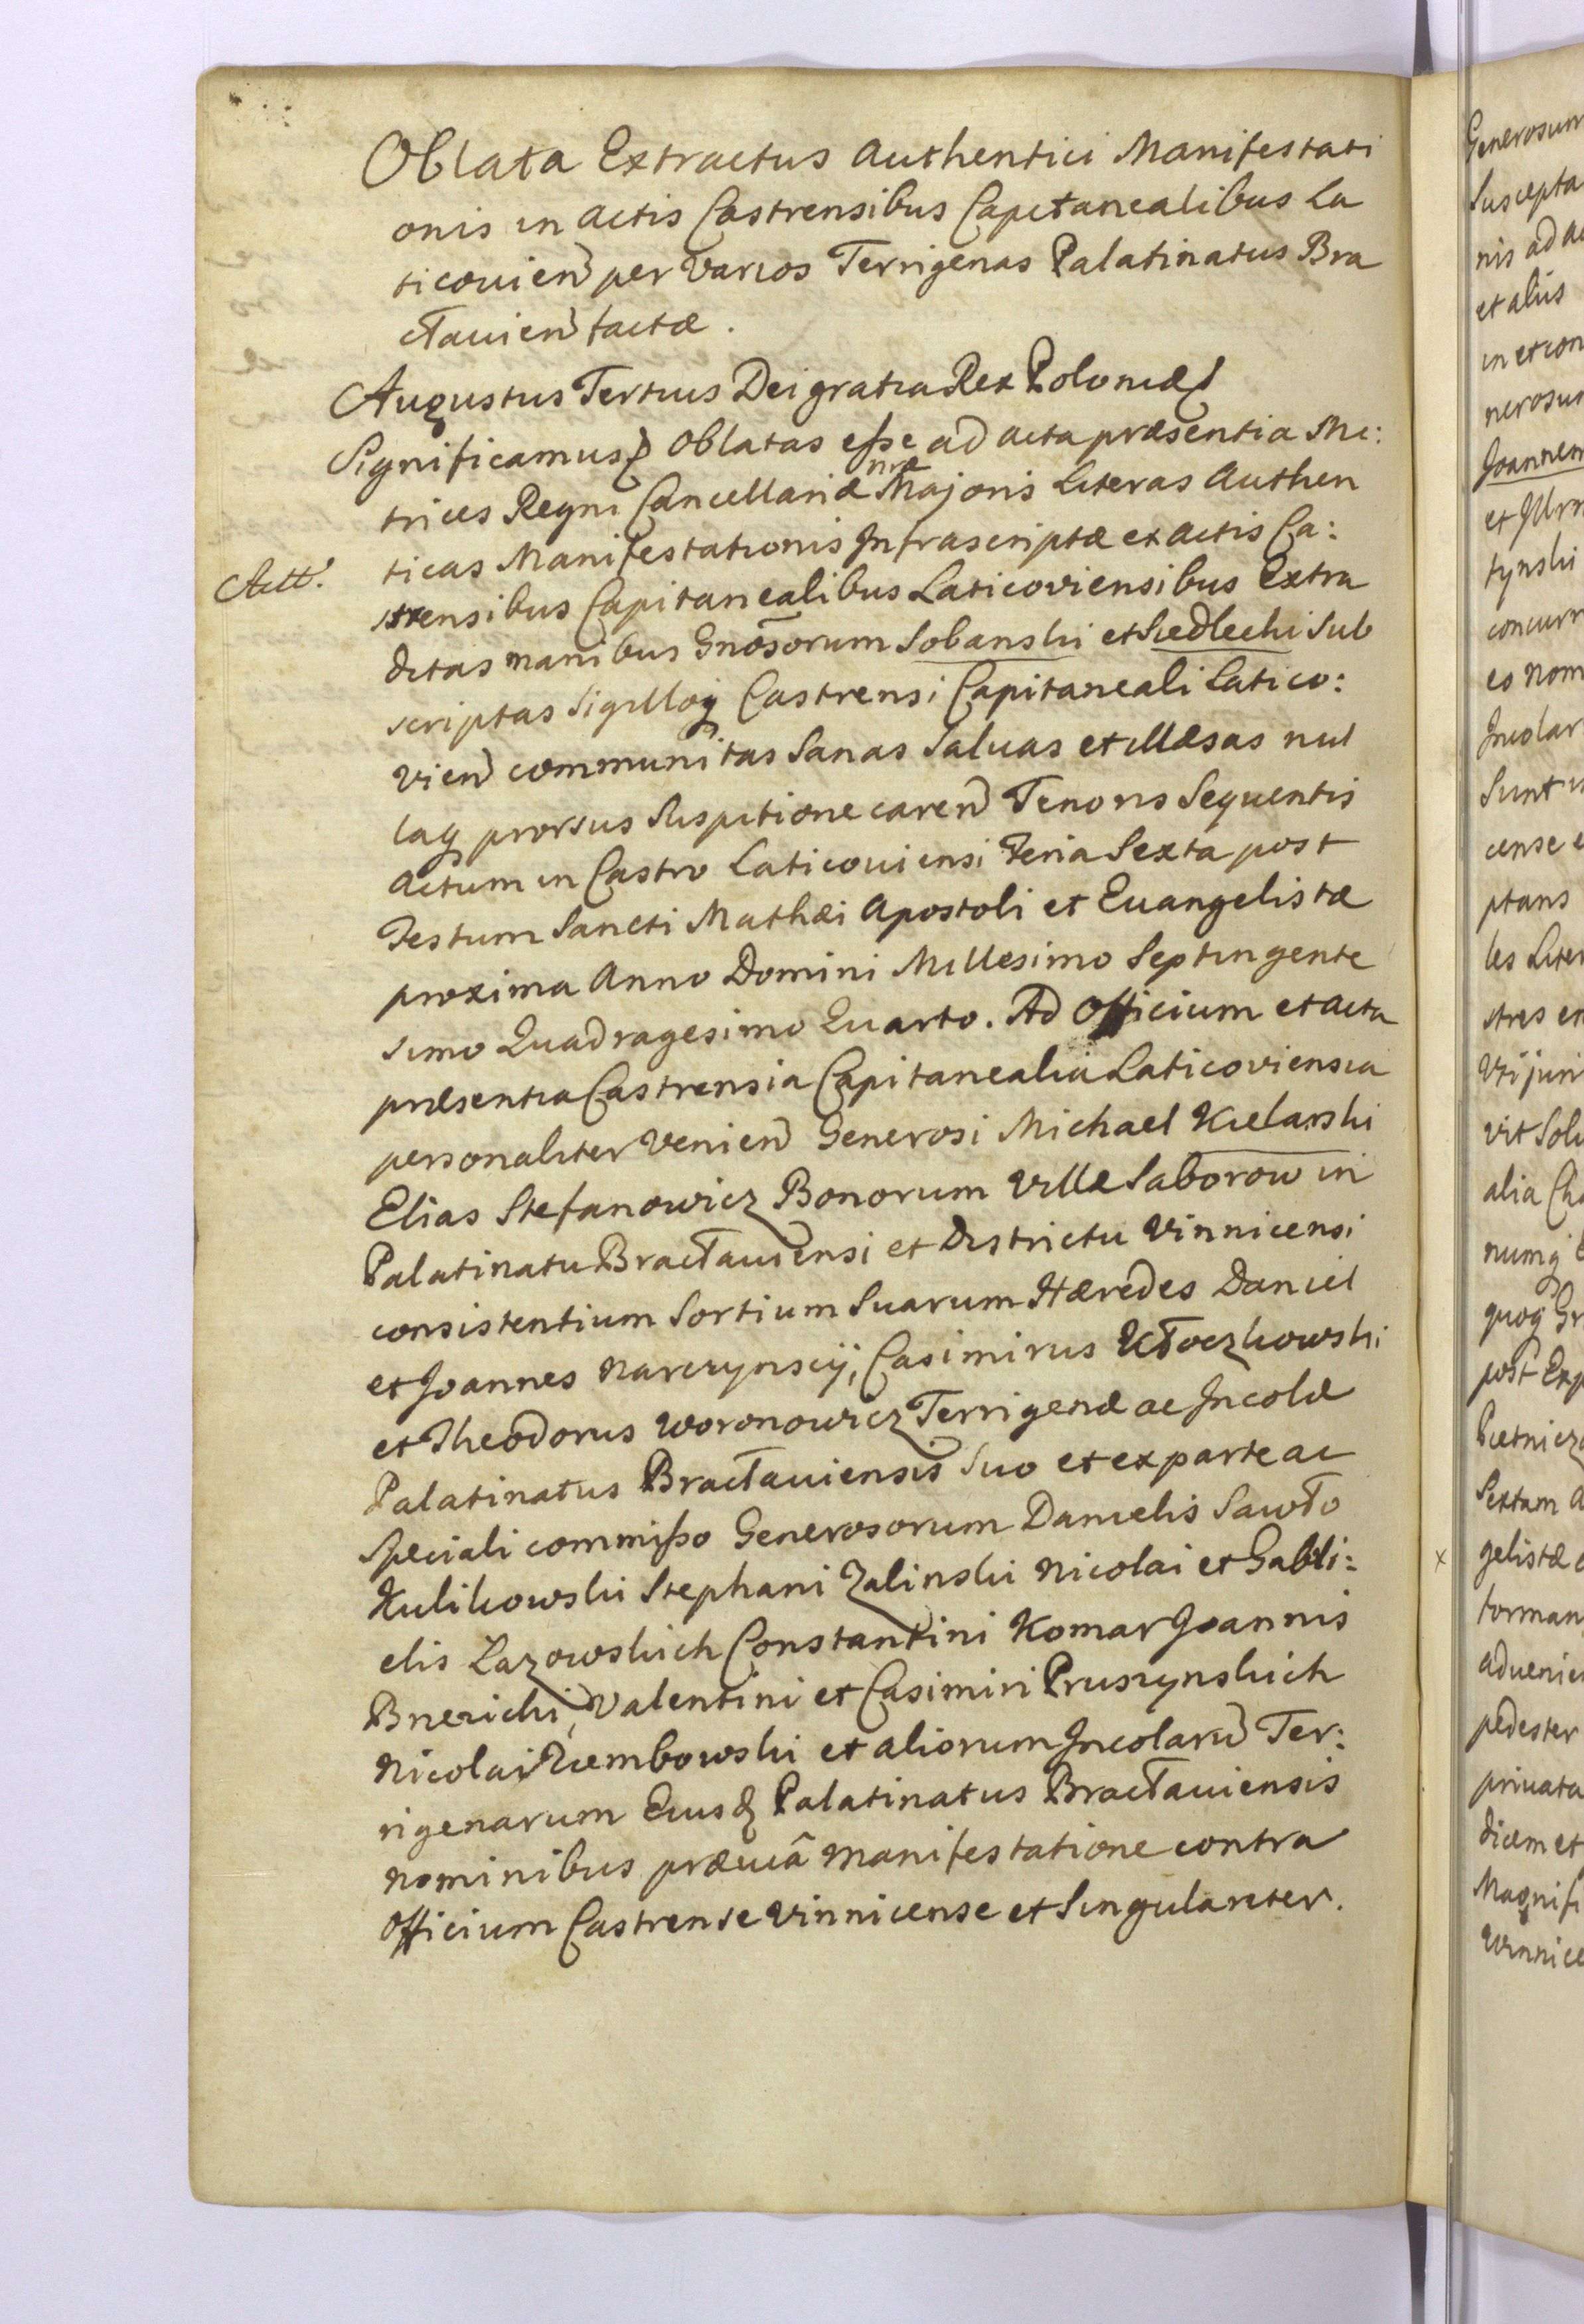 Oblata Extractus Authentici Manifestati
onis in Actis Castrensibus Capitanealibus La
ticovien per Varios Terrigenas Palatinatus Bra
cłavien factæ.
Augustus Tertius Dei gratia Rex Poloniæ
Significamus Oblatas eſse ad acta præsentia Me:
nræ
trices Regni Cancellariæ Majoris Literas Authen
ticas Manifestationis Infrascriptæ ex actis Ca:
Actt.
strensibus Capitanealibus Laticoviensibus Extra
ditas manibus Gnõsorum Sobanski et Siedlecki Sub
scriptas Sigilloq Castrensi Capitaneali Latico:
vien communitas Sanas Saluas et illæsas nul
laq prorsus Suspitione caren Tenoris Sequentis
Actum in Castro Laticoviensi Feria Sexta post
Festum Sancti Mathæi Apostoli et Euangelistæ
proxima Anno Domini Millesimo Septingente
simo Quadragesimo Quarto. Ad Officium et acta
præsentia Castrensia Capitanealia Laticoviensia
personaliter Venien Generosi Michael Kielarski
Elias Stefanowicz Bonorum Villæ Saborow in
Palatinatu Bracłaviensi et Districtu Vinnicensi
consistentium Sortium Suarum Hæredes Daniel
et Joannes Narczynscij, Casimirus Kłoczkowski
et Theodorus Woronowicz Terrigenæ ac Incolæ
Palatinatus Bracłaviensis Suo et ex parte ac
Speciali commiſso Generosorum Danielis Sawło
Kulikowski Stephani Zalinski Nicolai et Gabri:
elis Lazowskich Constantini Komar Joannis
Bnerichi, Valentini et Casimiri Pruszynskich
Nicolai Ziembowski et aliorum Incolaru Ter:
rigenarum Eiusq Palatinatus Bracłaviensis
nominibus præuiâ manifestatione contra
Officium Castrense Vinnicense et Singulariter.
Generosum
Suscepta
et aliis
in et con
nerosus
Joannem
tynski
concurr
es Nom
Incolar
Sunt
cense
ptans
les Liter
stres
Vti juri
vit
alia
numq
quoq
post Exp
Sextam
gelistæ
forman
aduenie
pedester
priuata
dicem et
Magnifi
Winnice